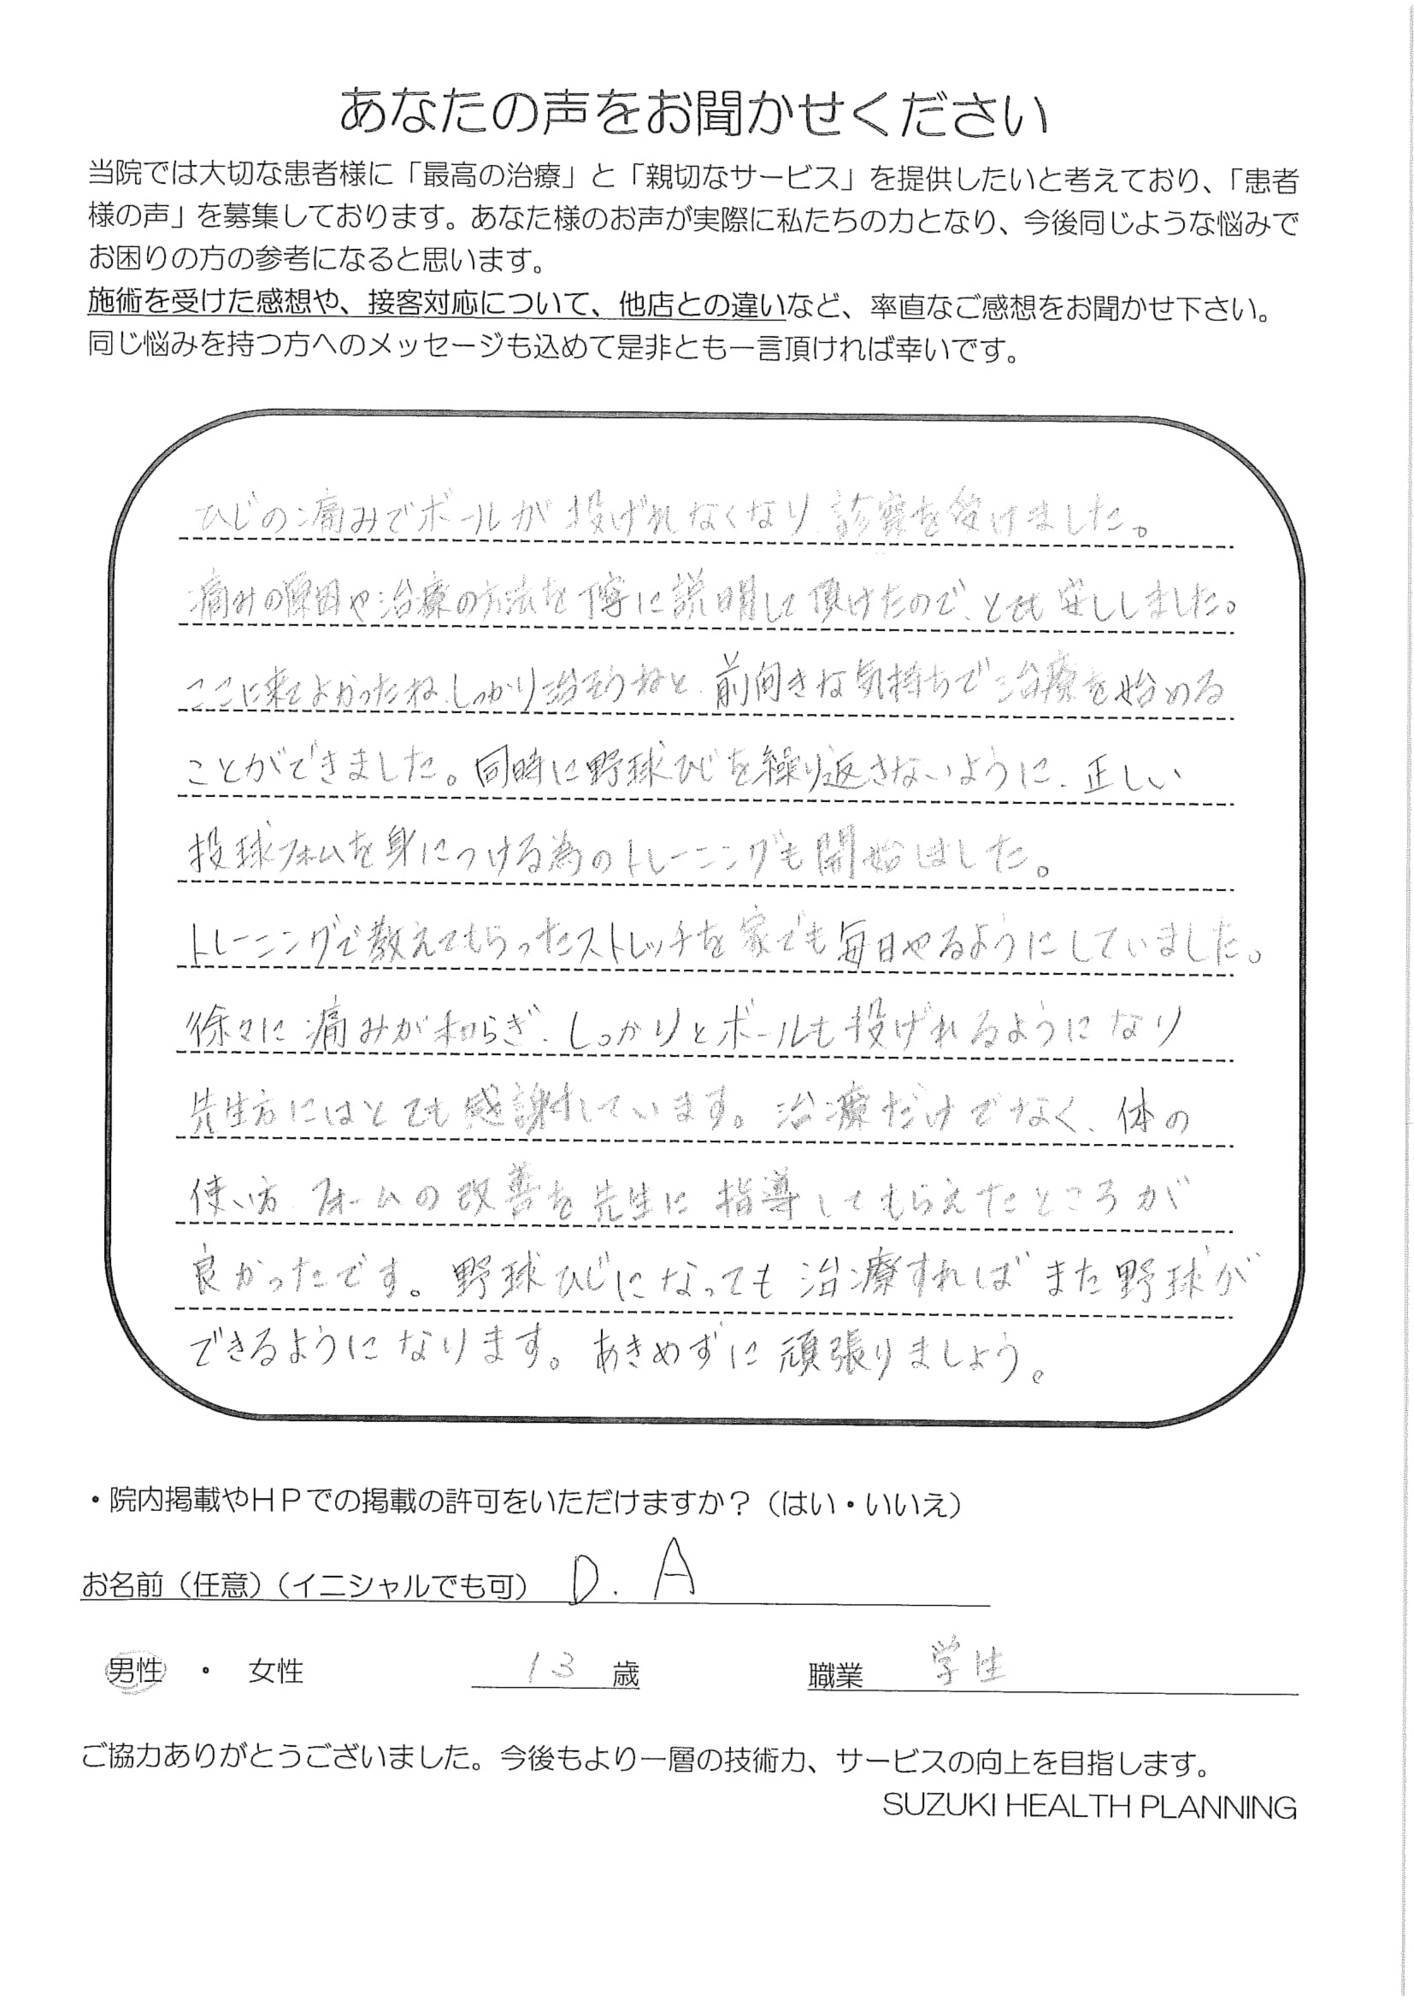 あなたの声をお聞かせください
当院では大切な患者様に「最高の治療」と「親切なサービス」を提供したいと考えており、「患者
様の声」を募集しております。あなた様のお声が実際に私たちの力となり、今後同じような悩みで
お困りの方の参考になると思います。
施術を受けた感想や、接客対応について、他店との違いなど、率直なご感想をお聞かせ下さい。
同じ悩みを持つ方へのメッセージも込めて是非とも一言頂ければ幸いです。
ひじの痛みでボールが投げれなくなり診察を受けました。
痛みの原因や治療の方法を丁寧に説明して頂けたので、とても安心しました。
ここに来てよかったね、しっかり治そうねと、前向きな気持ちで治療を始める
ことができました。同時に野球ひじを繰り返さないように、正しい
投球フォームを身につける為のトレーニングも開始しました。
トレーニングで教えてもらったストレッチを家でも毎日やるようにしていました。
徐々に痛みが和らぎ、しっかりとボールも投げれるようになり
先生方にはとても感謝しています。治療だけでなく、体の
使い方 フォームの改善を先生に指導してもらえたところが
良かったです。野球ひじになっても治療すればまた野球が
できるようになります。あきめずに頑張りましょう。
・院内掲載やHPでの掲載の許可をいただけますか？（はい・いいえ）
お名前（任意）（イニシャルでも可） D. A
男性 ・ 女性 13 歳 職業 学生
ご協力ありがとうございました。今後もより一層の技術力、サービスの向上を目指します。
SUZUKI HEALTH PLANNING